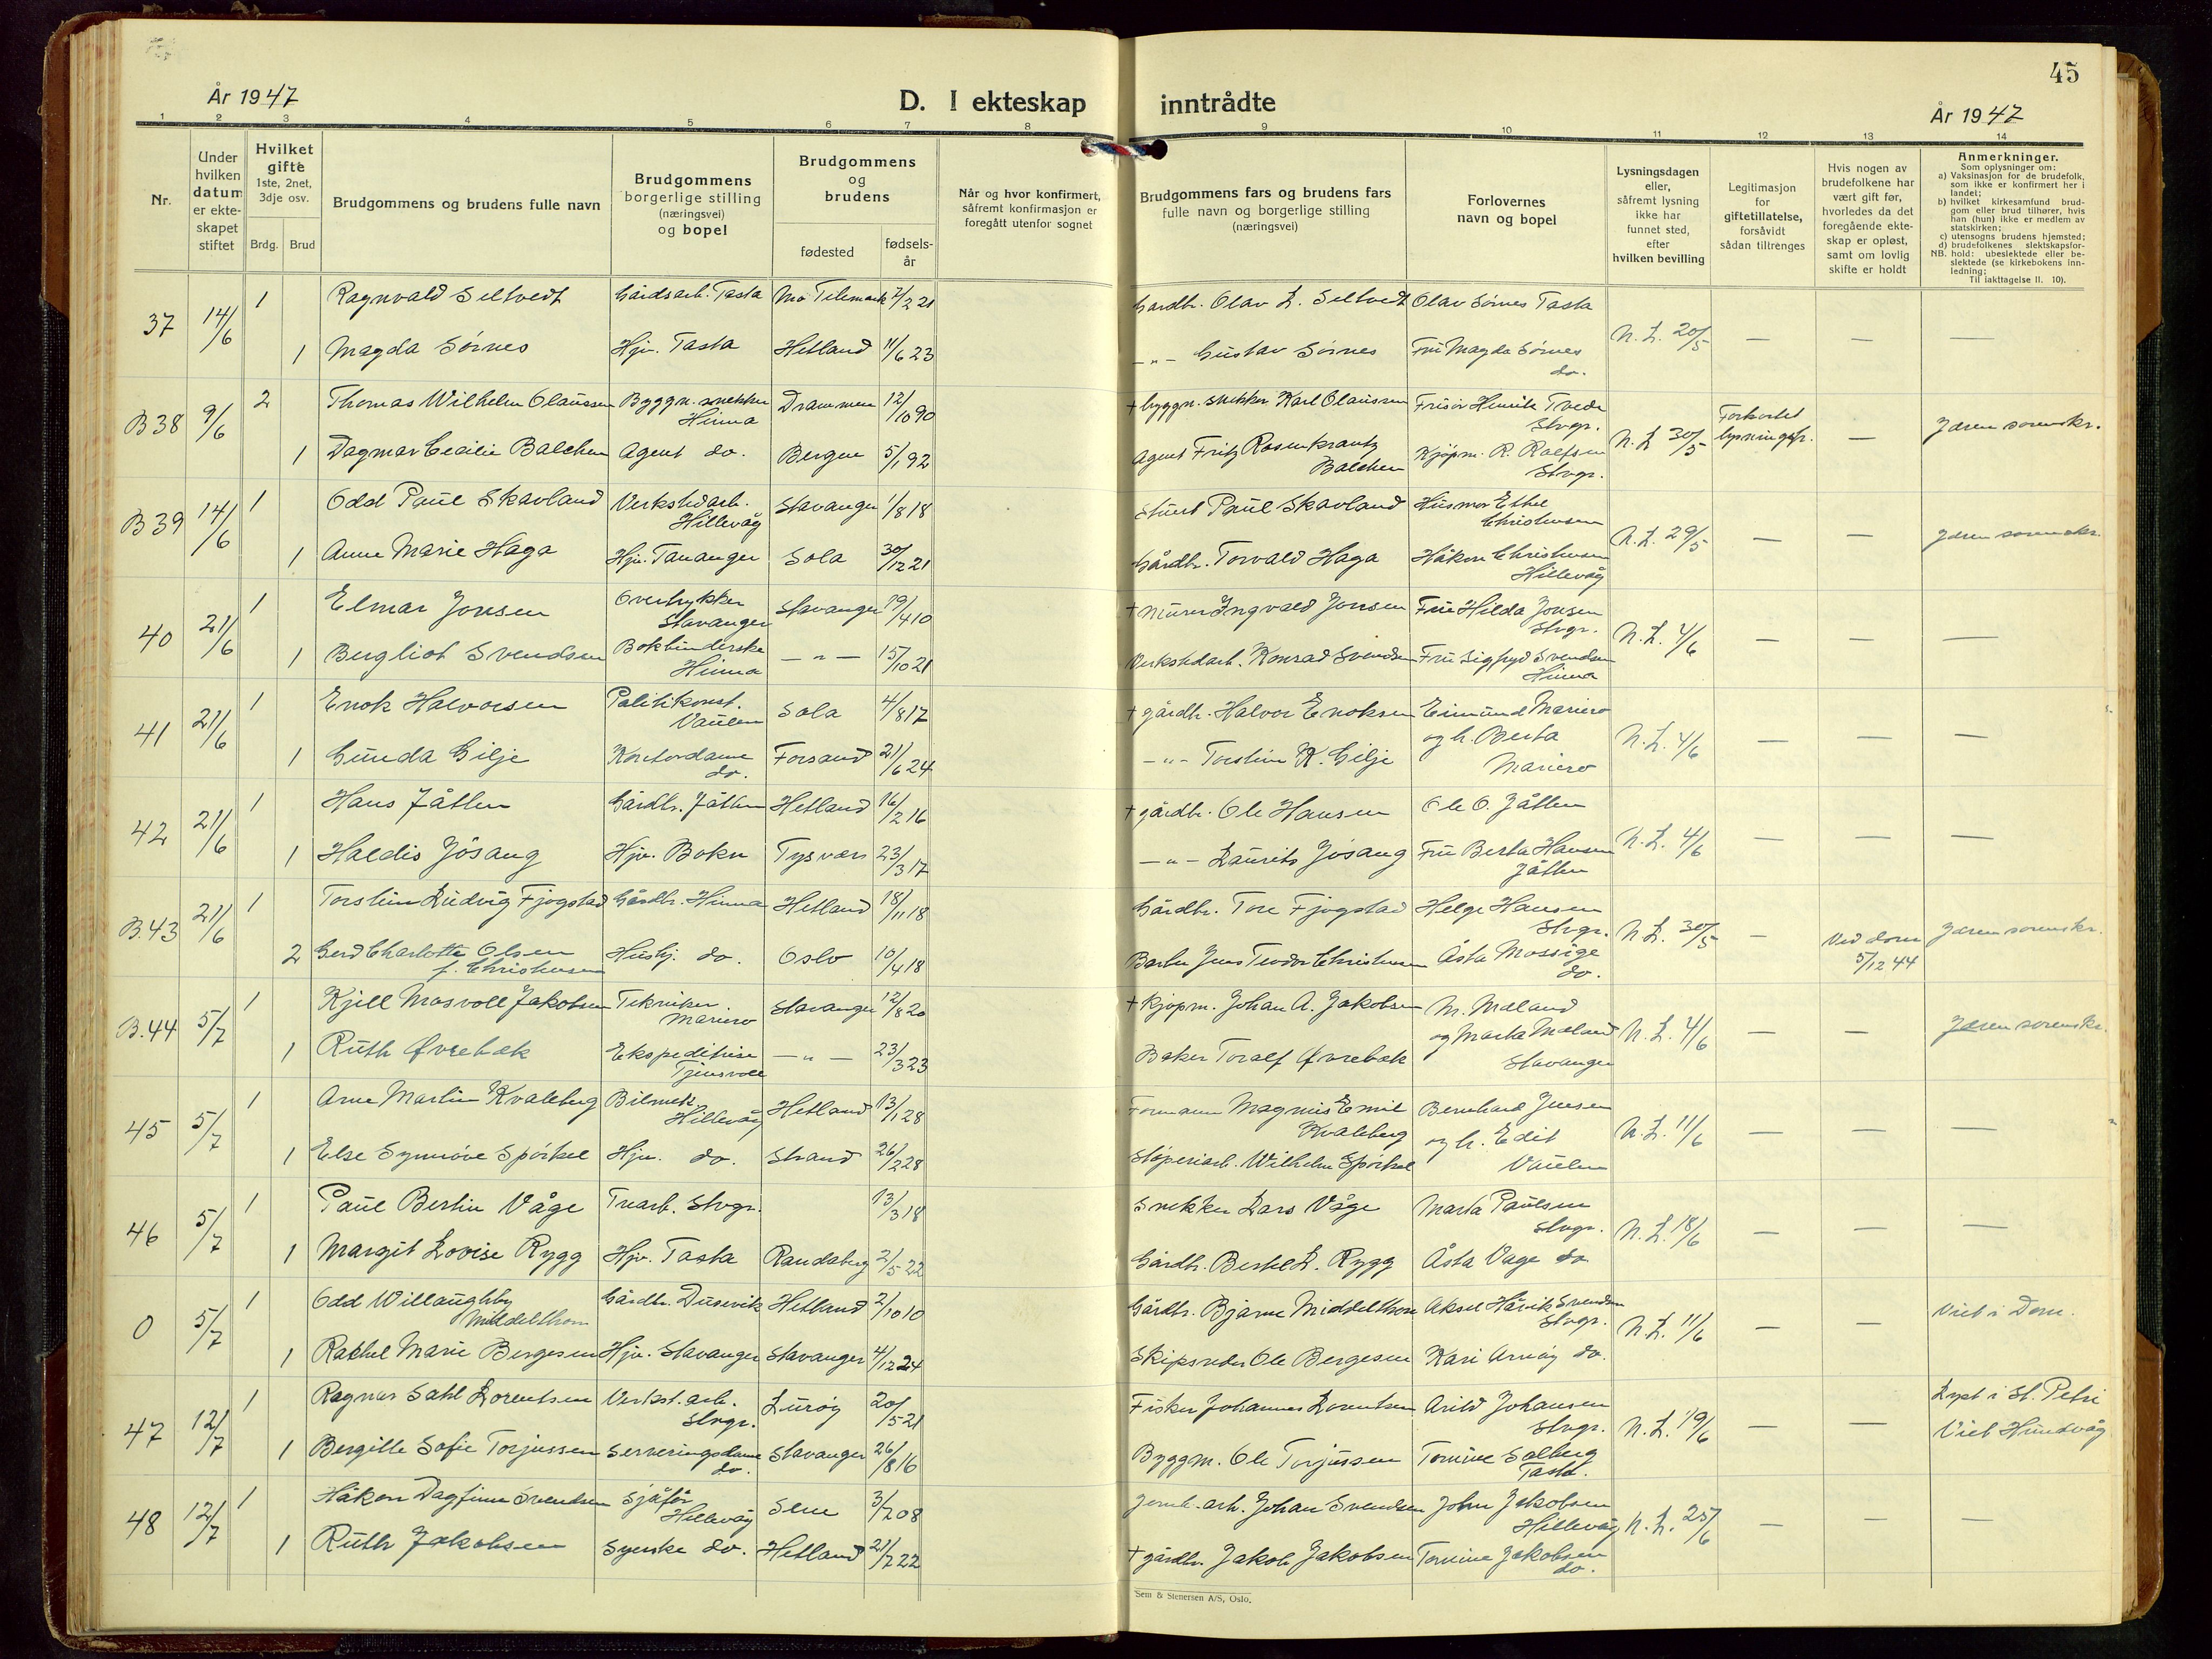 45
År 1947
D. I ekteskap inntrådte
År 1947
1 2 3 4 5 6 7 8 9 10 11 12 13 14
Nr.
Under hvilken datum er ekteskapet stiftet
Hvilket gifte 1ste, 2net, 3dje osv.
Brdg. Brud
Brudgommens og brudens fulle navn
Brudgommens borgerlige stilling (næringsvei) og bopel
Brudgommens og brudens
fødested
fødselsår
Når og hvor konfirmert, såfremt konfirmasjon er foregått utenfor sognet
Brudgommens fars og brudens fars fulle navn og borgerlige stilling (næringsvei)
Forlovernes navn og bopel
Lysningsdagen eller, såfremt lysning ikke har funnet sted, efter hvilken bevilling
Legitimasjon for giftetillatelse, forsåvidt sådan tiltrenges
Hvis nogen av brudefolkene har vært gift før, hvorledes da det foregående ekteskap er opløst, samt om lovlig skifte er holdt
Anmerkninger.
Som oplysninger om:
a) Vaksinasjon for de brudefolk, som ikke er konfirmert her i landet;
b) hvilket kirkesamfund brudgom eller brud tilhører, hvis han (hun) ikke er medlem av statskirken;
c) utensogns brudens hjemsted;
d) brudefolkenes slektskapsforhold: ubeslektede eller beslektede (se kirkebokens innledning;
NB.
Til iakttagelse II. 10).
37 14/6 1 Ragnvald Seltvedt Gårdsarb. Tasta Mo Telemark 7/2 21 Gardbr. Olav L. Seltvedt Olav Sørnes Tasta N.L. 20/5 — — —
1 Magda Sørnes Hjv. Tasta Hetland 11/6 23 —"— Gustav Sørnes Fru Magda Sørnes do.
B38 9/6 2 Thomas Wilhelm Olaussen Byggn. snekker Hinna Drammen 12/10 90 + byggn. snekker Karl Olaussen Frisør Henrik Tvede Stvgr. N.L. 30/5 Forkortet lysningsfr. — Jæren sorenskr.
1 Dagmar Cecilie Balchen Agent do. Bergen 5/1 92 Agent Fritz Rosenkrantz Balchen Kjøpm. R. Rolfsen Stvgr.
B39 14/6 1 Odd Paul Skavland Verkstedarb. Hillevåg Stavanger 1/8 18 Stuert Paul Skavland Husmor Ethel Christensen N.L. 29/5 — — Jæren sorenskr.
1 Anne Marie Haga Hjv. Tananger Sola 30/12 21 Gårdbr. Torvald Haga Håkon Christensen Hillevåg
40 21/6 1 Elmar Jonsen Overtrykker Stavanger Stavanger 19/4 10 + murer Ingvald Jonsen Fru Hilda Jonsen Stvgr. N.L. 4/6 — — —
1 Bergliot Svendsen Bokbinderske Hinna —"— 15/10 21 Verkstedarb. Konrad Svendsen Fru Sigfryd Svendsen Hinna
41 21/6 1 Enok Halvorsen Politikonst. Vaulen Sola 4/8 17 + gårdbr. Halvor Enoksen Eimund Mariero N.L. 4/6 — — —
1 Gunda Gilje Kontordame do. Forsand 21/6 24 —"— Torstein K. Gilje og h. Berta Mariero
42 21/6 1 Hans Jåtten Gårdbr. Jåtten Hetland 16/2 16 + gårdbr. Ole Hansen Ole O. Jåtten N.L. 4/6 — — —
1 Haldis Jøsang Hjv. Bokn Tysvær 23/3 17 —"— Laurits Jøsang Fru Berta Hansen Jåtten
B.43 21/6 1 Torstein Ludvig Fjogstad Gårdbr. Hinna Hetland 18/11 18 Gårdbr. Tore Fjogstad Helge Hansen Stvgr. N.L. 30/5 — Ved dom 5/12 44 Jæren sorenskr.
2 Gerd Charlotte Olsen f. Christensen Hushj. do. Oslo 10/4 18 Barber Jens Teodor Christensen Åsta Mossige do.
B.44 5/7 1 Kjell Mosvoll Jakobsen Tekniker Mariero Stavanger 12/8 20 + Kjøpm. Johan A. Jakobsen M. Mæland N.L. 4/6 — — Jæren sorenskr.
1 Ruth Øvrebæk Ekspeditrise Tjensvoll —"— 23/3 23 Baker Toralf Øvrebæk og Marta Mæland Stavanger
45 5/7 1 Arne Martin Kvaleberg Bilmek. Hillevåg Hetland 13/1 28 Formann Magnus Emil Kvaleberg Bernhard Jensen N.L. 11/6 — — —
1 Else Synnøve Spørkel Hjv. do. Strand 26/2 28 Støperiarb. Wilhelm Spørkel og h. Edit Vaulen
46 5/7 1 Paul Bertin Våge Trearb. Stvgr. 13/3 18 Snekker Lars Våge Marta Paulsen Stvgr. N.L. 18/6 — — —
1 Margit Lovise Rygg Hjv. Tasta Randaberg 2/5 22 Gårdbr. Bertel L. Rygg Åsta Våge do
0 5/7 1 Odd Willaughby Middelthon Gårdbr. Dusevik Hetland 2/10 10 Gårdbr. Bjarne Middelthon Aksel Håvik Svendsen Stvgr. N.L. 11/6 — — Viet i Dom.
1 Rachel Marie Bergesen Hjv. Stavanger Stavanger 4/12 24 Skipsreder Ole Bergesen Kari Arnøy do.
47 12/7 1 Ragnar Dahl Lorentsen Verkst. arb. Stvgr. Lurøy 20/5 21 Fisker Johannes Lorentsen Arild Johansen Stvgr. N.L. 19/6 — — Lyst i St. Petri
1 Bergitte Sofie Torjussen Serveringsdame do. Stavanger 26/8 16 Byggm. Ole Torjussen Tomine Solberg Tasta. Viet Hundvåg
48 12/7 1 Håkon Dagfinn Svendsen Sjåfør Hillevåg Sem 3/7 08 Jernb. arb. Johan Svendsen John Jakobsen Hillevåg N.L. 25/6 — — —
1 Ruth Jakobsen Syerske do. Hetland 21/7 22 + gårdbr. Jakob Jakobsen Tomine Jakobsen do.
Sem & Stenersen A/S, Oslo.